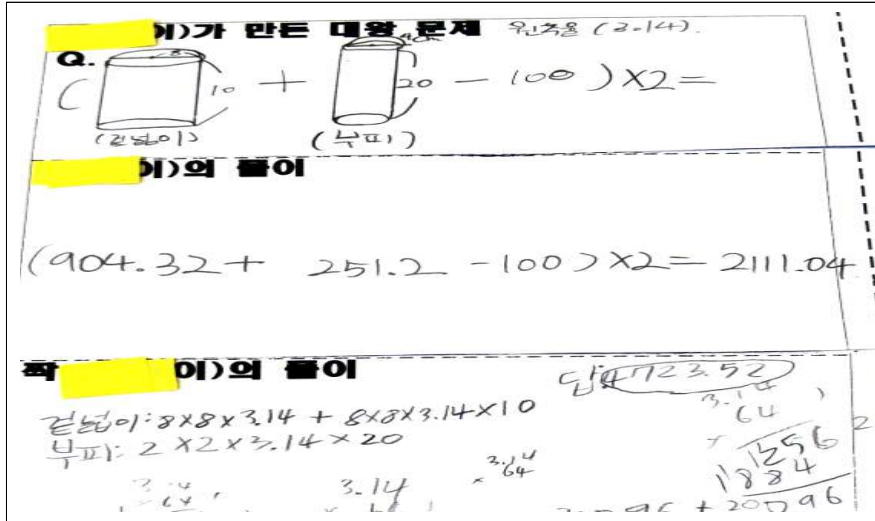 이)가 만든 대왕 문제 원주율 (3.14).
Q.
( 8 10 + 4cm 20 - 100 ) X2 =
(겉넓이) (부피)
이)의 풀이
(904.32 + 251.2 - 100) X2 = 2111.04
짝 이)의 풀이
답: 4723.52
겉넓이: 8X8X3.14 + 8X8X3.14X10
부피: 2X2X3.14X20
3.14
64
1256
1884
20096
3.14
x 64
3.14